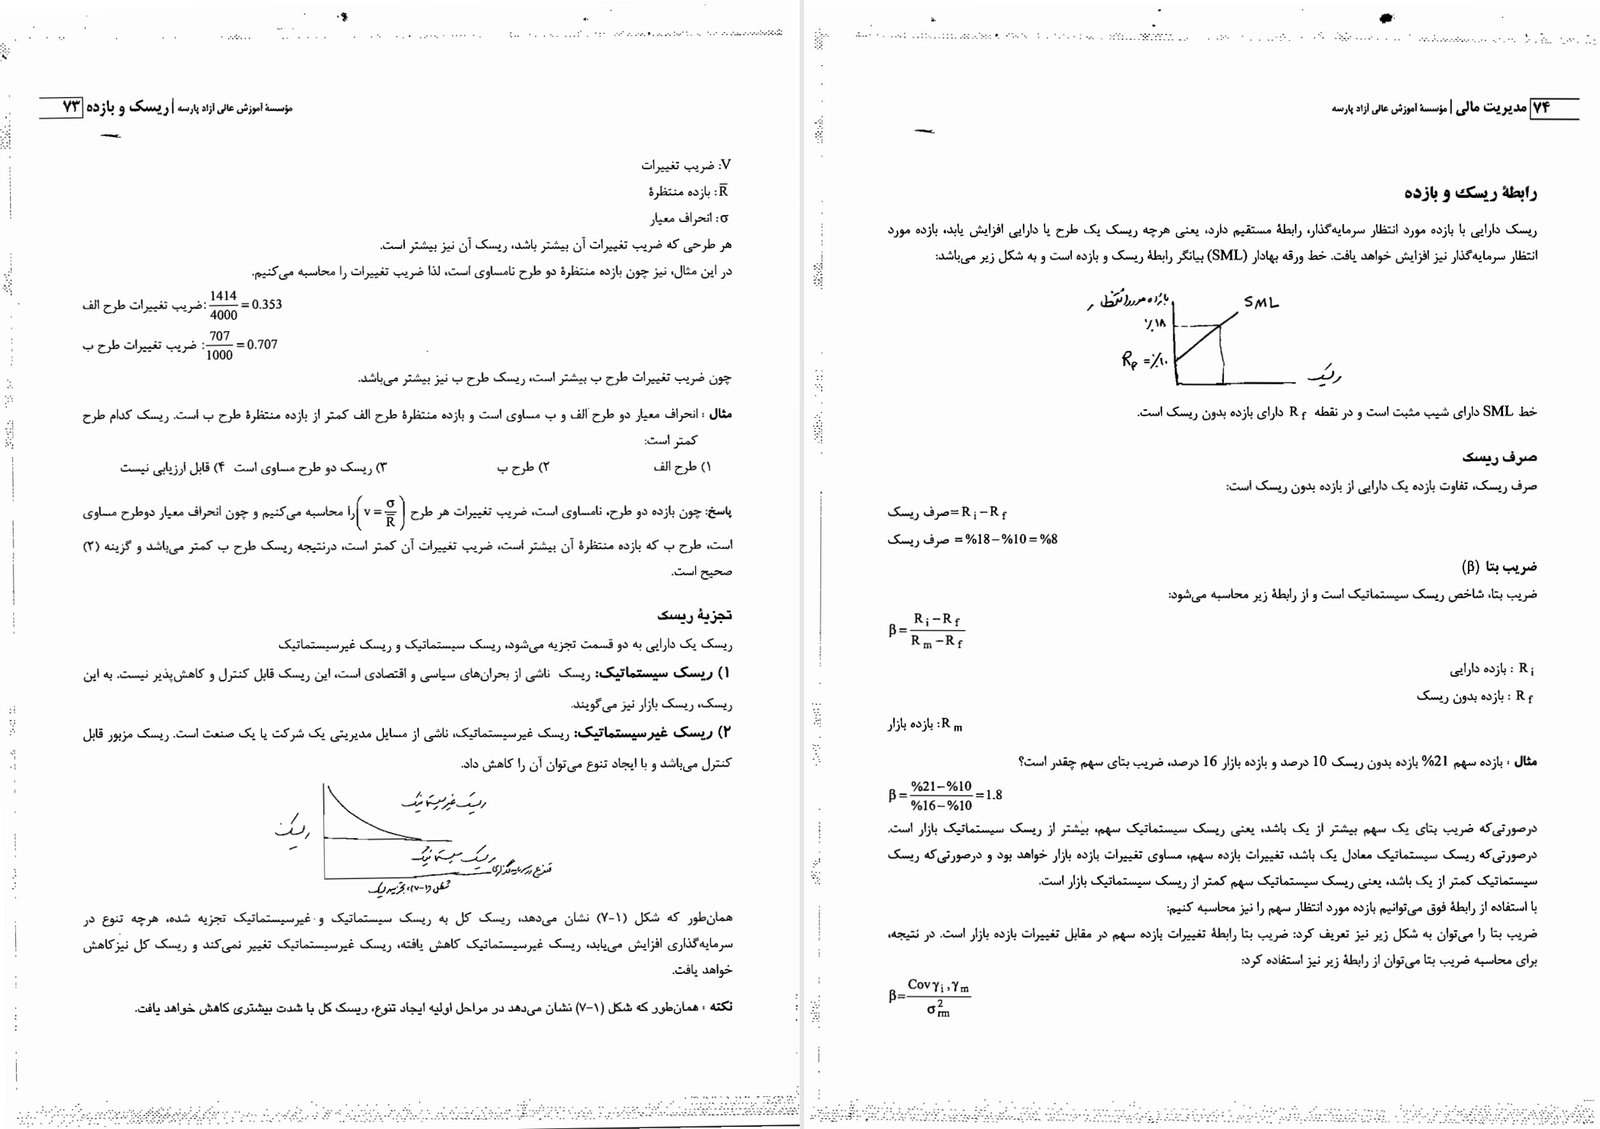 مؤسسهٔ آموزش عالی آزاد پارسه | ریسک و بازده ۷۳
V: ضریب تغییرات
R̅: بازده منتظرهٔ
σ: انحراف معیار
هر طرحی که ضریب تغییرات آن بیشتر باشد، ریسک آن نیز بیشتر است.
در این مثال، نیز چون بازده منتظرهٔ دو طرح نامساوی است، لذا ضریب تغییرات را محاسبه می‌کنیم.
ضریب تغییرات طرح الف: 1414/4000 = 0.353
ضریب تغییرات طرح ب: 707/1000 = 0.707
چون ضریب تغییرات طرح ب بیشتر است، ریسک طرح ب نیز بیشتر می‌باشد.
مثال : انحراف معیار دو طرح الف و ب مساوی است و بازده منتظرهٔ طرح الف کمتر از بازده منتظرهٔ طرح ب است. ریسک کدام طرح
کمتر است:
۱) طرح الف ۲) طرح ب ۳) ریسک دو طرح مساوی است ۴) قابل ارزیابی نیست
پاسخ: چون بازده دو طرح، نامساوی است، ضریب تغییرات هر طرح (v = σ/R̅) را محاسبه می‌کنیم و چون انحراف معیار دوطرح مساوی
است، طرح ب که بازده منتظرهٔ آن بیشتر است، ضریب تغییرات آن کمتر است، درنتیجه ریسک طرح ب کمتر می‌باشد و گزینه (۲)
صحیح است.
تجزیهٔ ریسک
ریسک یک دارایی به دو قسمت تجزیه می‌شود، ریسک سیستماتیک و ریسک غیرسیستماتیک
۱) ریسک سیستماتیک: ریسک ناشی از بحران‌های سیاسی و اقتصادی است، این ریسک قابل کنترل و کاهش‌پذیر نیست. به این
ریسک، ریسک بازار نیز می‌گویند.
۲) ریسک غیرسیستماتیک: ریسک غیرسیستماتیک، ناشی از مسایل مدیریتی یک شرکت یا یک صنعت است. ریسک مزبور قابل
کنترل می‌باشد و با ایجاد تنوع می‌توان آن را کاهش داد.
ریسک غیرسیستماتیک
ریسک
ریسک سیستماتیک
تنوع در سرمایه‌گذاری
شکل (۱-۷)، تجزیه ریسک
همان‌طور که شکل (۱-۷) نشان می‌دهد، ریسک کل به ریسک سیستماتیک و غیرسیستماتیک تجزیه شده، هرچه تنوع در
سرمایه‌گذاری افزایش می‌یابد، ریسک غیرسیستماتیک کاهش یافته، ریسک غیرسیستماتیک تغییر نمی‌کند و ریسک کل نیزکاهش
خواهد یافت.
نکته : همان‌طور که شکل (۱-۷) نشان می‌دهد در مراحل اولیه ایجاد تنوع، ریسک کل با شدت بیشتری کاهش خواهد یافت.
۷۴ مدیریت مالی | مؤسسهٔ آموزش عالی آزاد پارسه
رابطهٔ ریسک و بازده
ریسک دارایی با بازده مورد انتظار سرمایه‌گذار، رابطهٔ مستقیم دارد، یعنی هرچه ریسک یک طرح یا دارایی افزایش یابد، بازده مورد
انتظار سرمایه‌گذار نیز افزایش خواهد یافت. خط ورقه بهادار (SML) بیانگر رابطهٔ ریسک و بازده است و به شکل زیر می‌باشد:
بازده مورد انتظار
SML
٪۱۸
R_F = ٪۱۰
ریسک
خط SML دارای شیب مثبت است و در نقطه R_f دارای بازده بدون ریسک است.
صرف ریسک
صرف ریسک، تفاوت بازده یک دارایی از بازده بدون ریسک است:
صرف ریسک = R_i − R_f
صرف ریسک = %18 − %10 = %8
ضریب بتا (β)
ضریب بتا، شاخص ریسک سیستماتیک است و از رابطهٔ زیر محاسبه می‌شود:
β = (R_i − R_f)/(R_m − R_f)
R_i : بازده دارایی
R_f : بازده بدون ریسک
R_m: بازده بازار
مثال : بازده سهم 21% بازده بدون ریسک 10 درصد و بازده بازار 16 درصد، ضریب بتای سهم چقدر است؟
β = (%21 − %10)/(%16 − %10) = 1.8
درصورتی‌که ضریب بتای یک سهم بیشتر از یک باشد، یعنی ریسک سیستماتیک سهم، بیشتر از ریسک سیستماتیک بازار است.
درصورتی‌که ریسک سیستماتیک معادل یک باشد، تغییرات بازده سهم، مساوی تغییرات بازده بازار خواهد بود و درصورتی‌که ریسک
سیستماتیک کمتر از یک باشد، یعنی ریسک سیستماتیک سهم کمتر از ریسک سیستماتیک بازار است.
با استفاده از رابطهٔ فوق می‌توانیم بازده مورد انتظار سهم را نیز محاسبه کنیم:
ضریب بتا را می‌توان به شکل زیر نیز تعریف کرد: ضریب بتا رابطهٔ تغییرات بازده سهم در مقابل تغییرات بازده بازار است. در نتیجه،
برای محاسبه ضریب بتا می‌توان از رابطهٔ زیر نیز استفاده کرد:
β = Cov γ_i , γ_m / σ²_rm